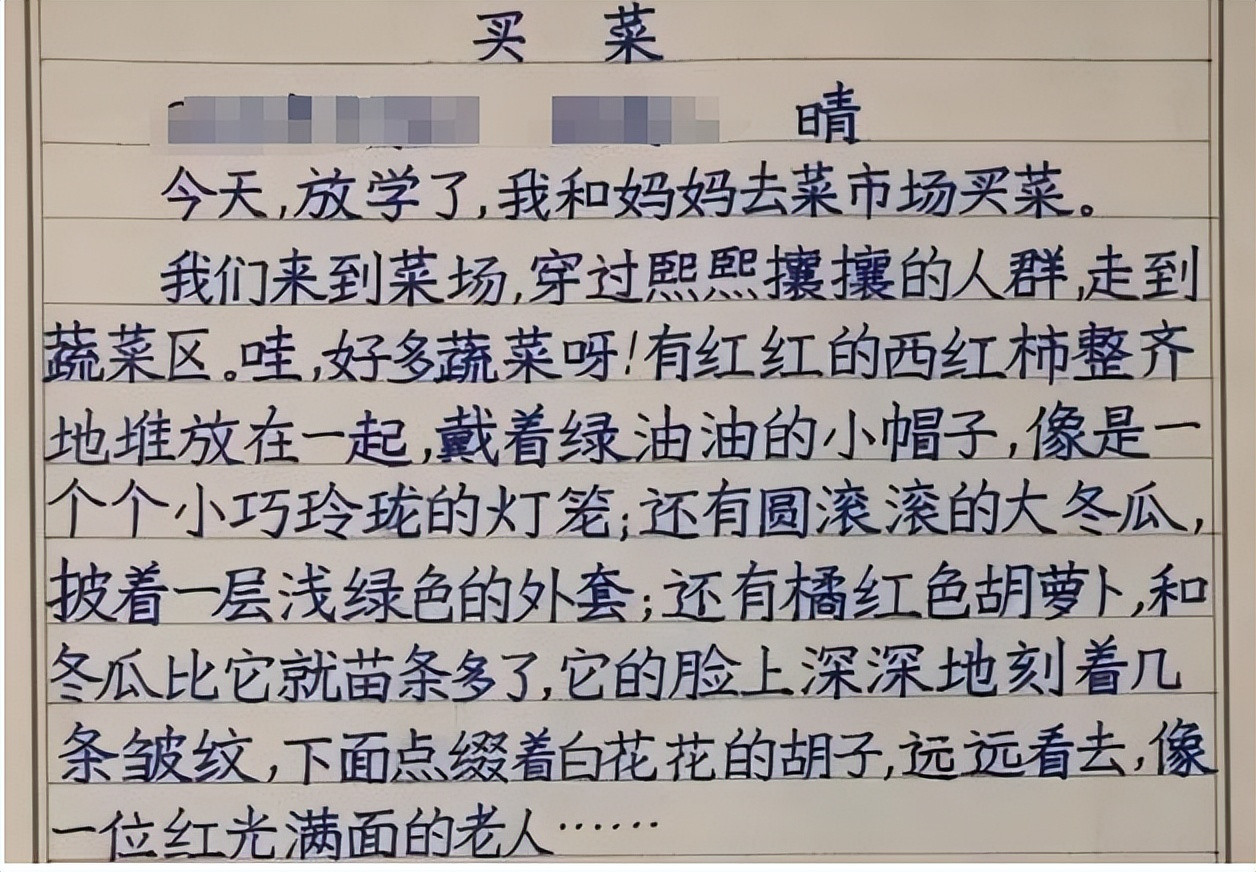 买 菜
晴
今天,放学了,我和妈妈去菜市场买菜。
我们来到菜场,穿过熙熙攘攘的人群,走到
蔬菜区。哇,好多蔬菜呀!有红红的西红柿整齐
地堆放在一起,戴着绿油油的小帽子,像是一
个个小巧玲珑的灯笼;还有圆滚滚的大冬瓜,
披着一层浅绿色的外套;还有橘红色胡萝卜,和
冬瓜比它就苗条多了,它的脸上深深地刻着几
条皱纹,下面点缀着白花花的胡子,远远看去,像
一位红光满面的老人……